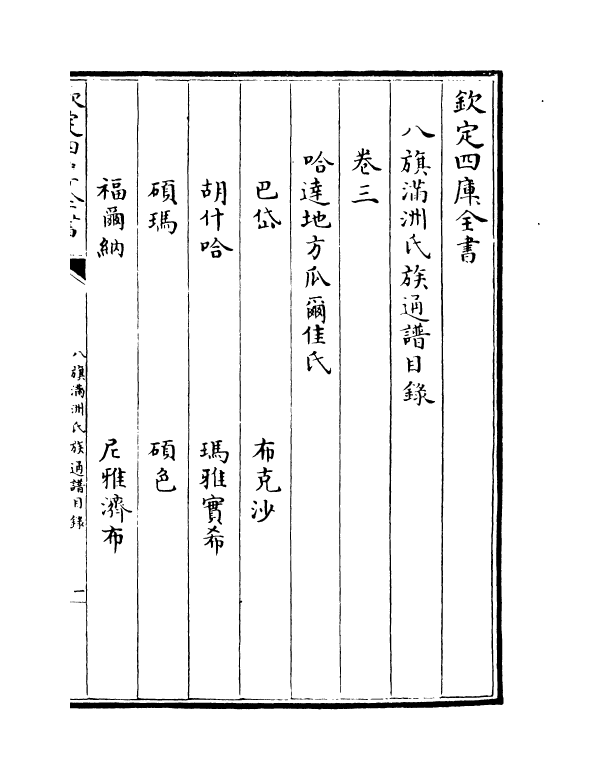 欽定四庫全書
八旗滿洲氏族通譜目錄
卷三
哈達地方瓜爾佳氏
巴岱 布克沙
胡什哈 瑪雅實希
碩瑪 碩色
福爾納 尼雅濟布
欽定四庫全書
八旗滿洲氏族通譜目錄